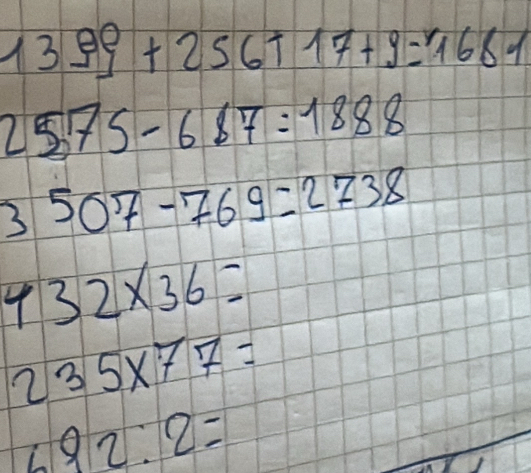 1399+256+17+9=1681
2575-687=1888
3507-769=2738
432x36=
235x77=
692:2=